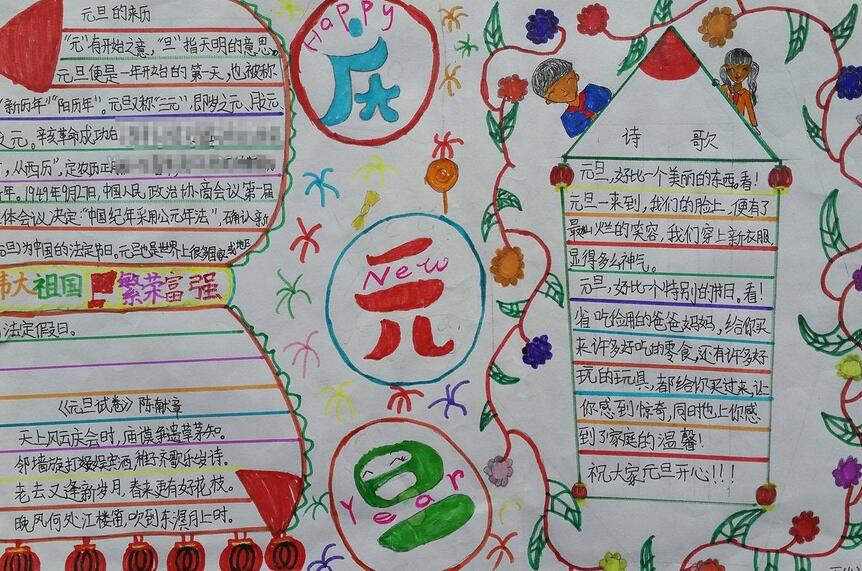 元旦的来历
"元"有开始之意，"旦"指天明的意思。
元旦便是一年开始的第一天，也被称
"新历年""阳历年"。元旦又称"三元"，即岁之元、月之元
之元。辛亥革命成功后
，从西历"，定农历正月
年。1949年9月27日，中国人民政治协商会议第一届
体会议决定："中国纪年采用公元年法"，确认新
元旦)为中国的法定节日。元旦也是世界上很多国家或地区
伟大祖国 繁荣富强
法定假日。
《元旦试卷》陈献章
天上风云庆会时，庙谟争遣草茅知。
邻墙旋打娱宾酒，稚齐歌乐岁诗。
老去又逢新岁月，春来更有好花枝。
晚风何处江楼笛，吹到东溟月上时。
Happy
庆
New
元
Year
旦
诗 歌
元旦，好比一个美丽的东西。看！
元旦一来到，我们的脸上，便有了
最灿烂的笑容，我们穿上新衣服，
显得多么神气。
元旦，好比个特别的节日。看！
省吃俭用的爸爸妈妈，给你买
来许多好吃的零食，还有许多好
玩的玩具，都给你买过来，让
你感到惊奇，同时也上你感
到了家庭的温馨！
祝大家元旦开心！！！